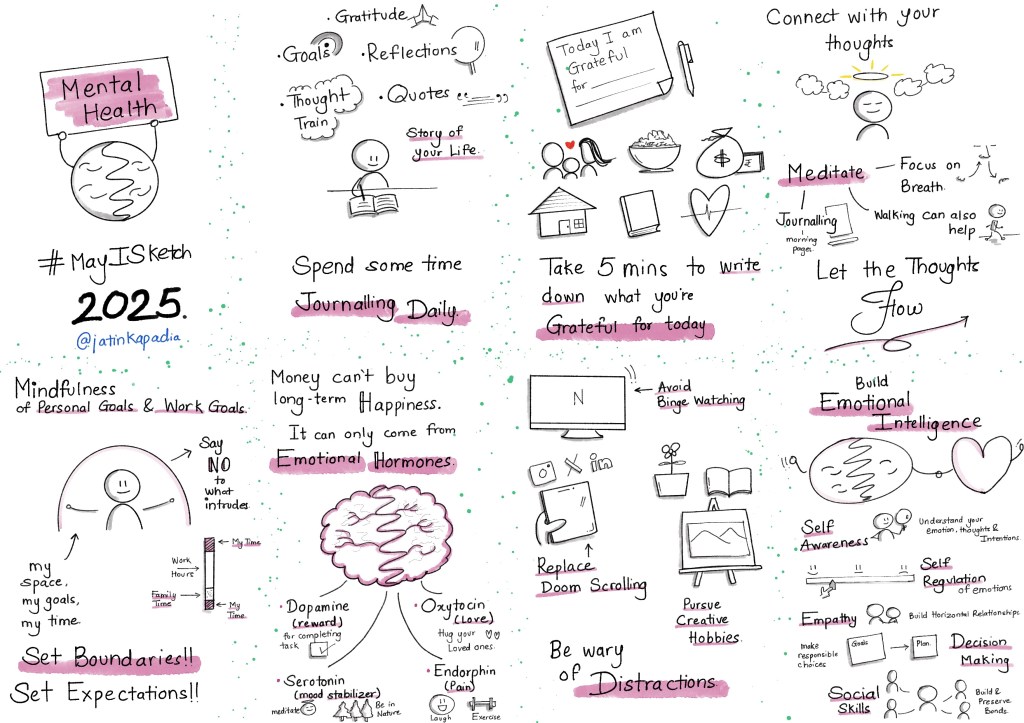 Mental
Health
#MayISketch
2025.
@jatinkapadia
• Gratitude
• Goals
• Reflections
• Thought
Train
• Quotes
Story of
your Life.
Spend some time
Journalling Daily.
Today I am
Grateful
for
$
₹
Take 5 mins to write
down what you're
Grateful for today
Connect with your
thoughts
Meditate
Focus on
Breath.
Journalling
morning
pages.
Walking can also
help
Let the Thoughts
Flow
Mindfulness
of Personal Goals & Work Goals.
Say
NO
to
what
intrudes
my
space,
my goals,
my time
My Time
Work
Hours
Family
Time
My
Time
Set Boundaries!!
Set Expectations!!
Money can't buy
long-term Happiness.
It can only come from
Emotional Hormones.
• Dopamine
(reward)
for completing
task
• Oxytocin
(Love)
Hug your
Loved ones.
• Serotonin
(mood stabilizer)
meditate
Be in
Nature
• Endorphin
(Pain)
Laugh
Exercise
N
Avoid
Binge Watching
X in
Replace
Doom Scrolling
Pursue
Creative
Hobbies.
Be wary
of Distractions
Build
Emotional
Intelligence
Self
Awareness
Understand your
emotion, thoughts &
Intentions.
Self
Regulation
of emotions
Empathy
Build Horizontal Relationships
make
responsible
choices
Goals
Plan.
Decision
Making
Social
Skills
Build &
Preserve
Bonds.